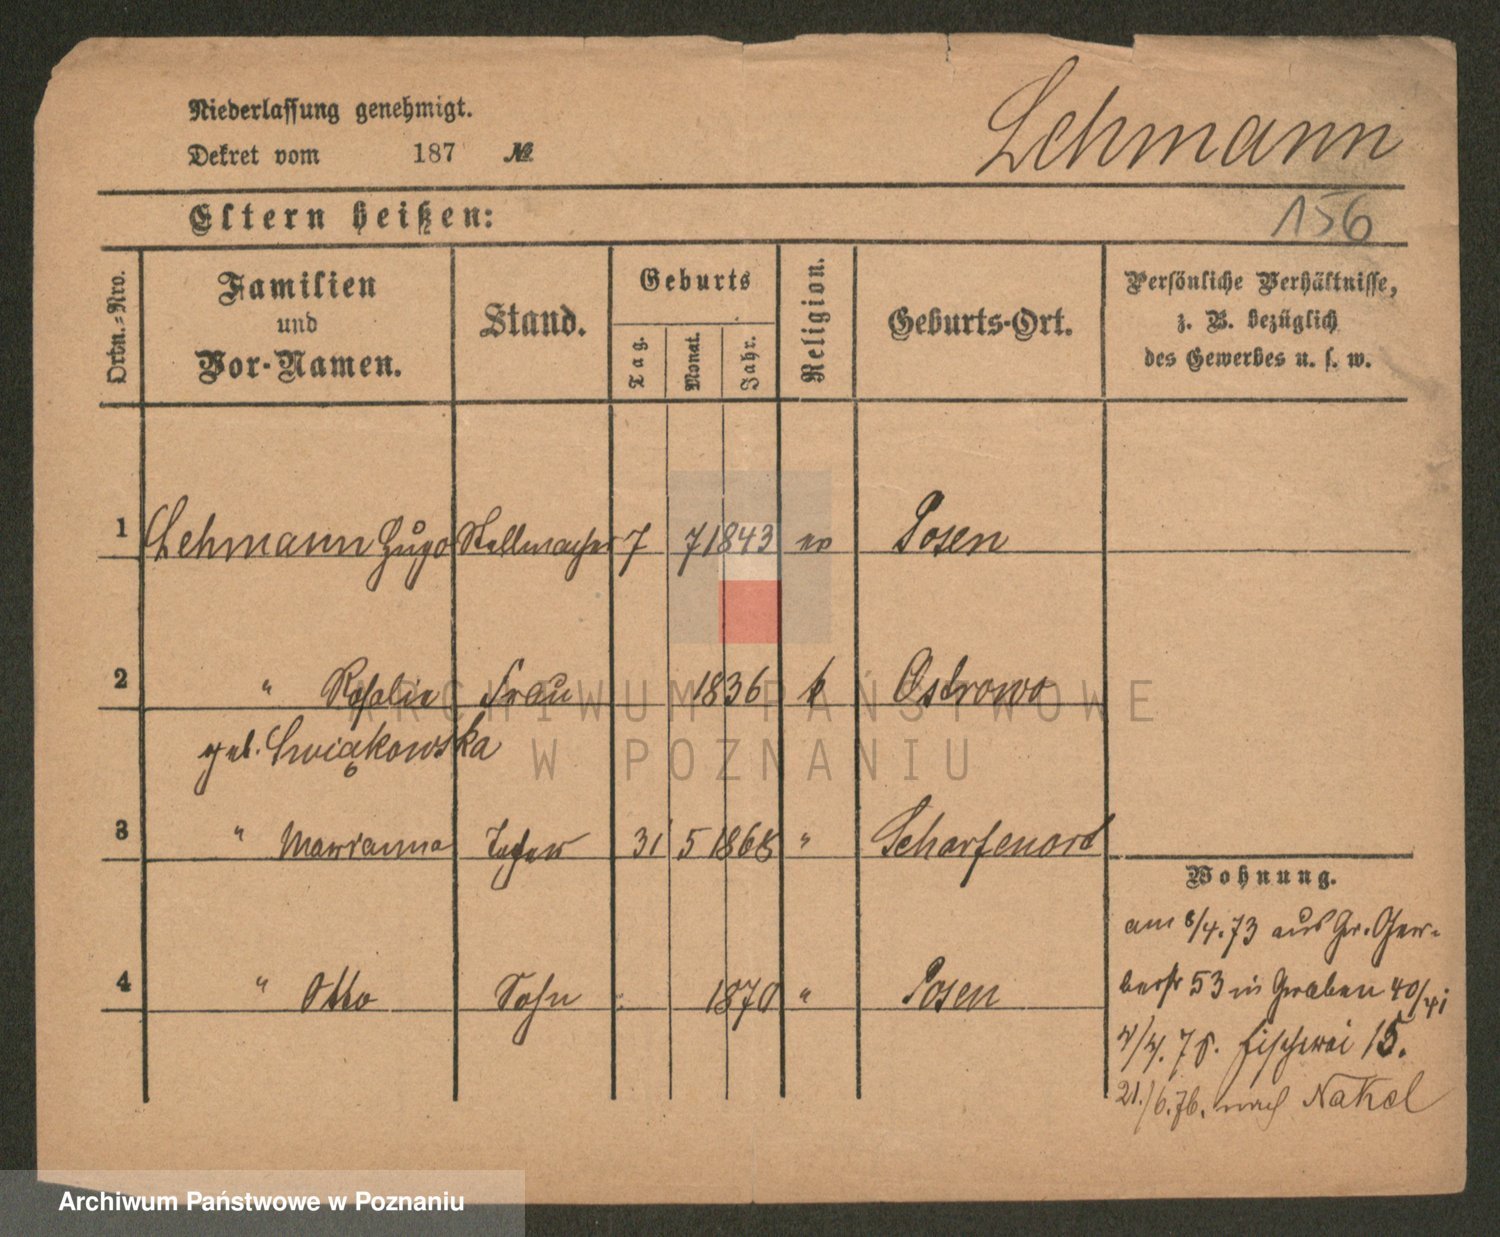 Lehmann
Niederlassung genehmigt.
Dekret vom 187 №
Eltern heißen:
156
Ortn.-Nro.
Familien
und
Vor-Namen.
Stand.
Geburts
Tag.
Monat.
Jahr.
Religion.
Geburts-Ort.
Persönliche Verhältnisse,
z. B. bezüglich
des Gewerbes u. s. w.
1 Lehmann Hugo Stellmacher 7 7 1843 ev Posen
2 " Rosalie Frau 1836 k Ostrowo
geb. Cwiąkowska
3 " Marianna 31 5 1868 " Scharfenort
4 " Otto Sohn 1870 " Posen
Wohnung.
am 8/4.73 aus Gr. Ger-
berstr 53 in Graben 40/41
Fischerei 15.
21./6.76. nach Nakel
ARCHIWUM PAŃSTWOWE
W POZNANIU
Archiwum Państwowe w Poznaniu